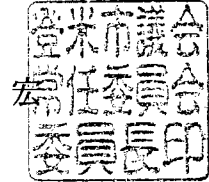 登米市議会
常任委員会
委員長印
宏